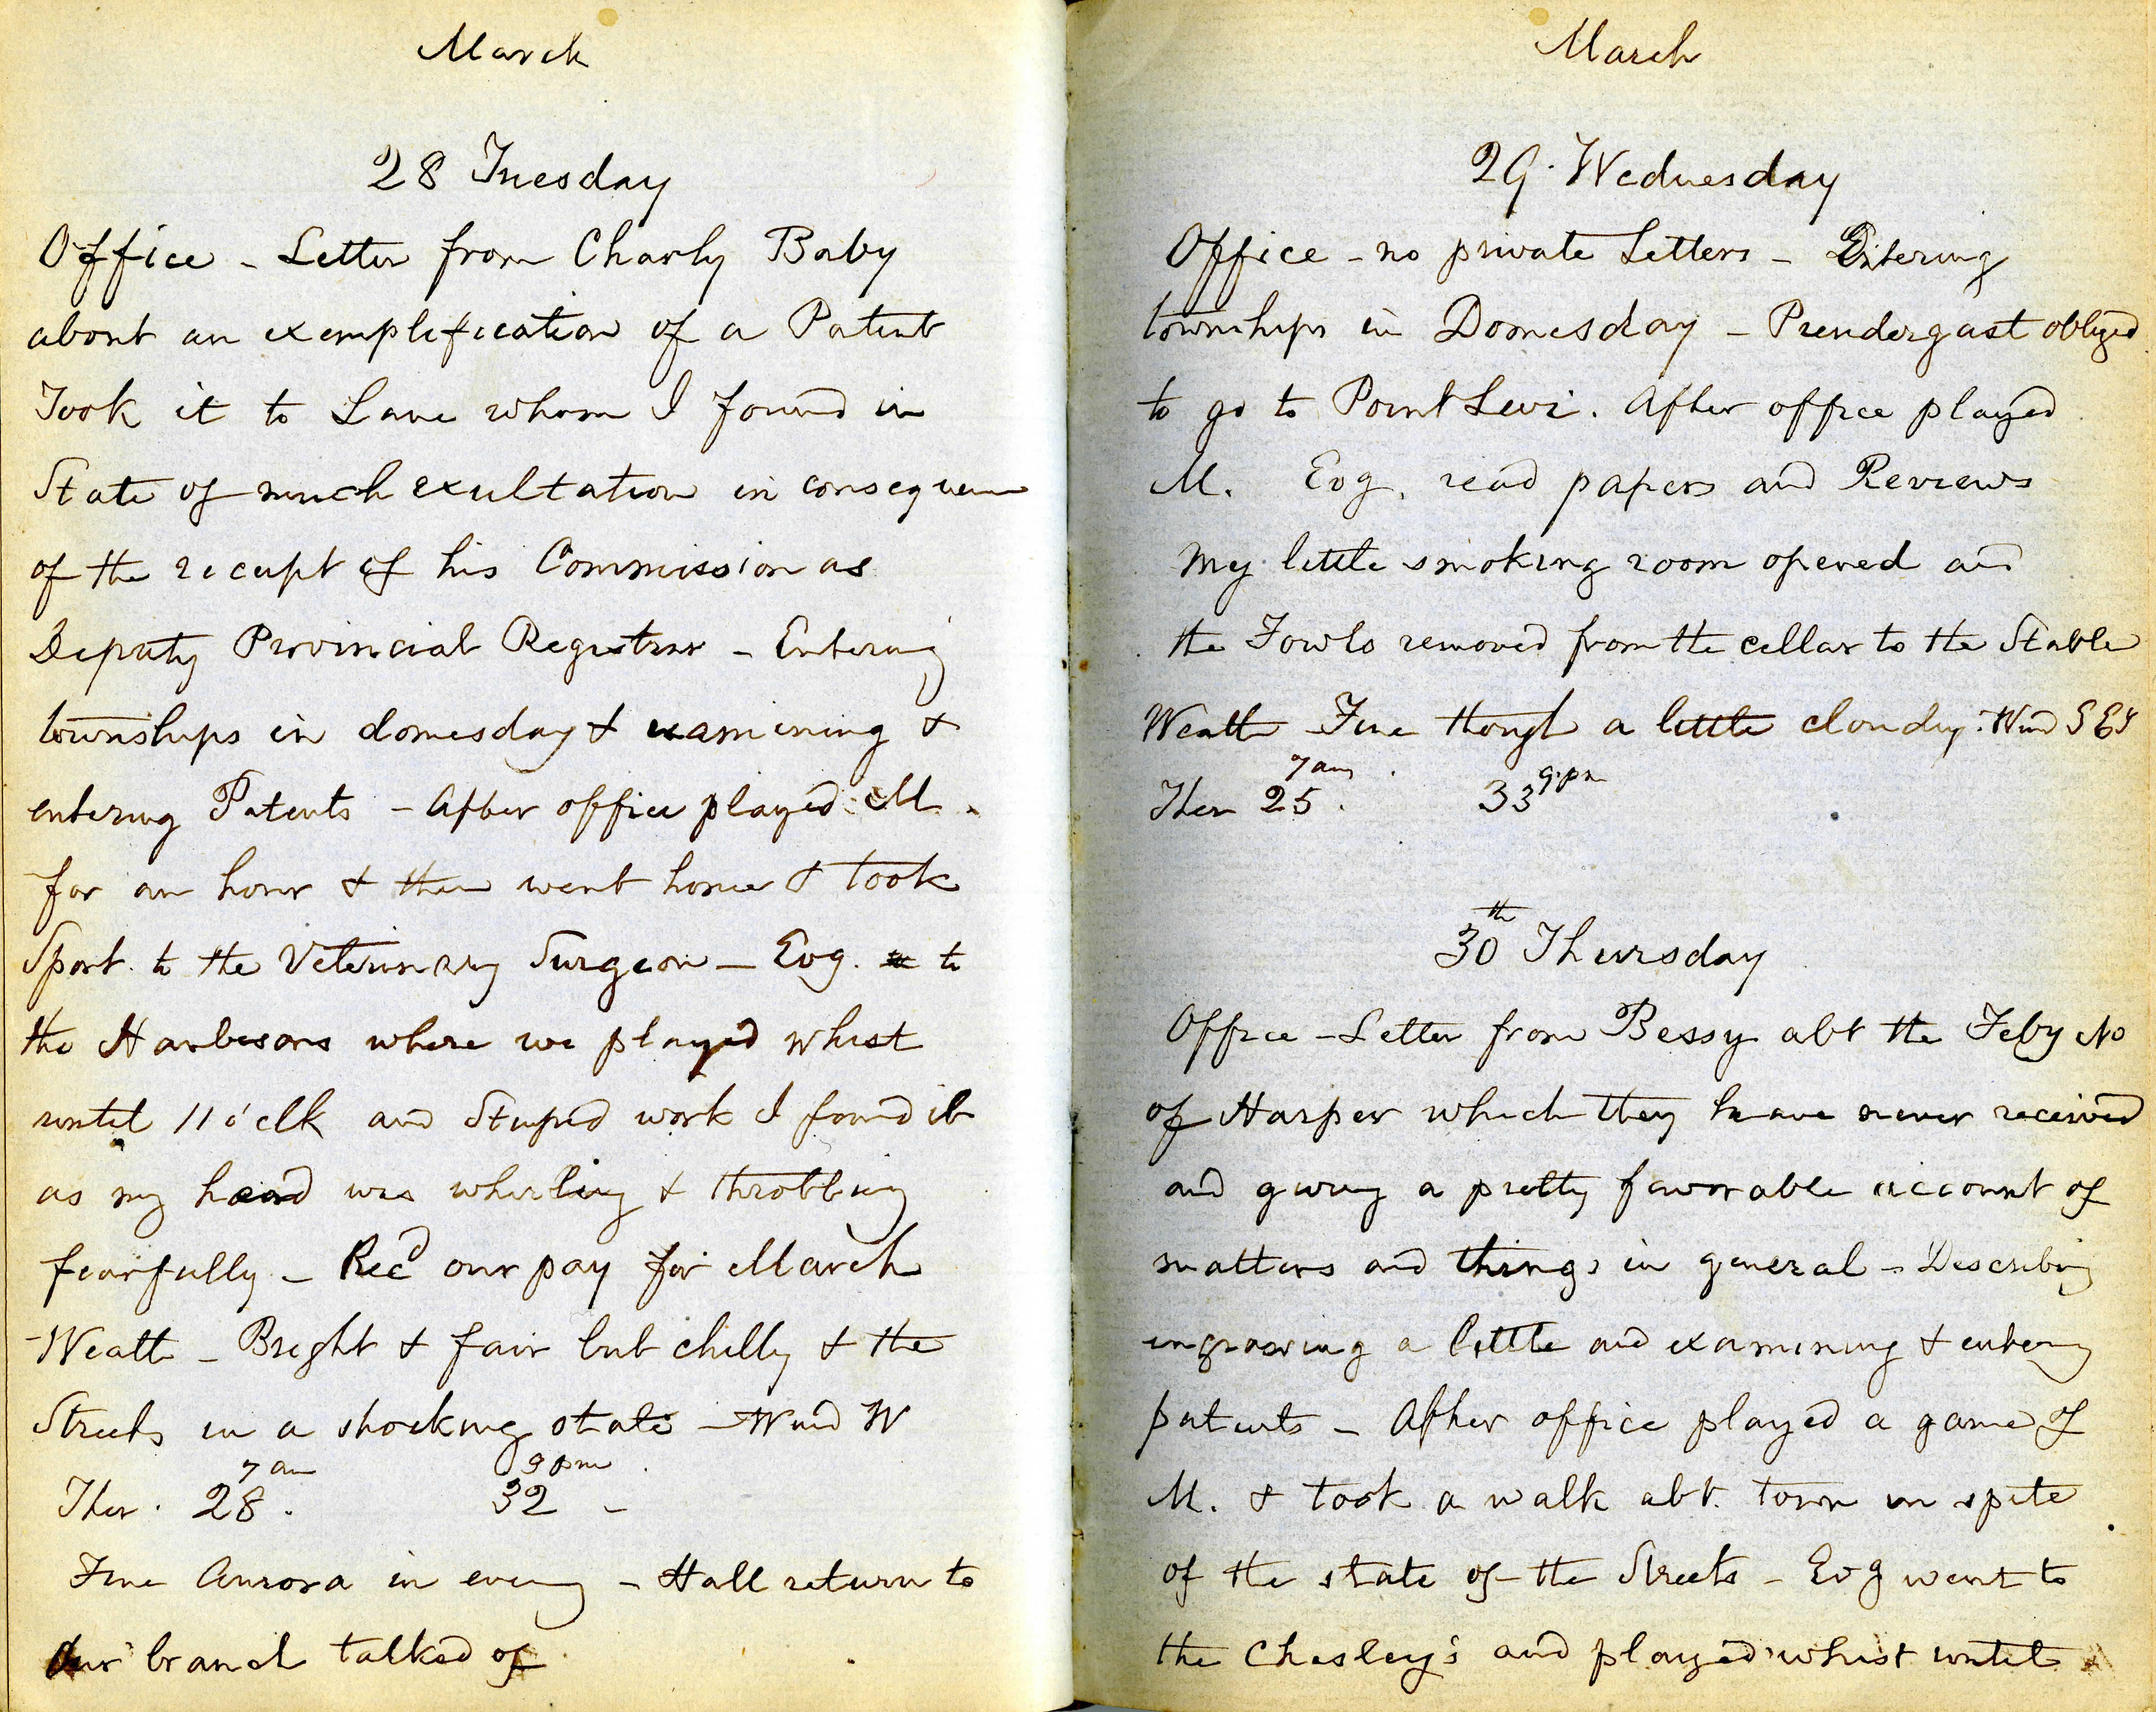 March
28 Tuesday
Office - Letter from Charly Baby
about an exemplification of a Patent
Took it to Lane whom I found in
State of much exultation in consequence
of the receipt of his Commission as
Deputy Provincial Registrar - Entering
townships in domesday & examining &
entering Patents - After office played M.
for an hour & then went home & took
Sport to the Veterinary Surgeon - Evg. to
the Harbesons where we played whist
until 11 o'clk and Stupid work I found it
as my head was whirling & throbbing
fearfully - Recd our pay for March
Weath - Bright & fair but chilly & the
Streets in a shocking state - Wind W
7 am 9 pm
Ther. 28. 32 -
Fine Aurora in eveng - Hall return to
Our branch talked of
March
29. Wednesday
Office - no private Letters - Entering
townships in Domesday - Prendergast obliged
to go to Point Levi. After office played
M. Evg. read papers and Reviews
My little smoking room opened and
the Fowls removed from the cellar to the Stable
Weath Fine though a little cloudy. Wind S Ely
7 am 9 pm
Ther 25. 33
30th Thursday
Office - Letter from Bessy abt the Feby No
of Harper which they have never received
and giving a pretty favorable account of
matters and things in general - Describing
engrossing a little and examining & entering
patents - After office played a game of
M. & took a walk abt. town in spite
of the state of the Streets - Evg went to
the Chesley's and played whist until